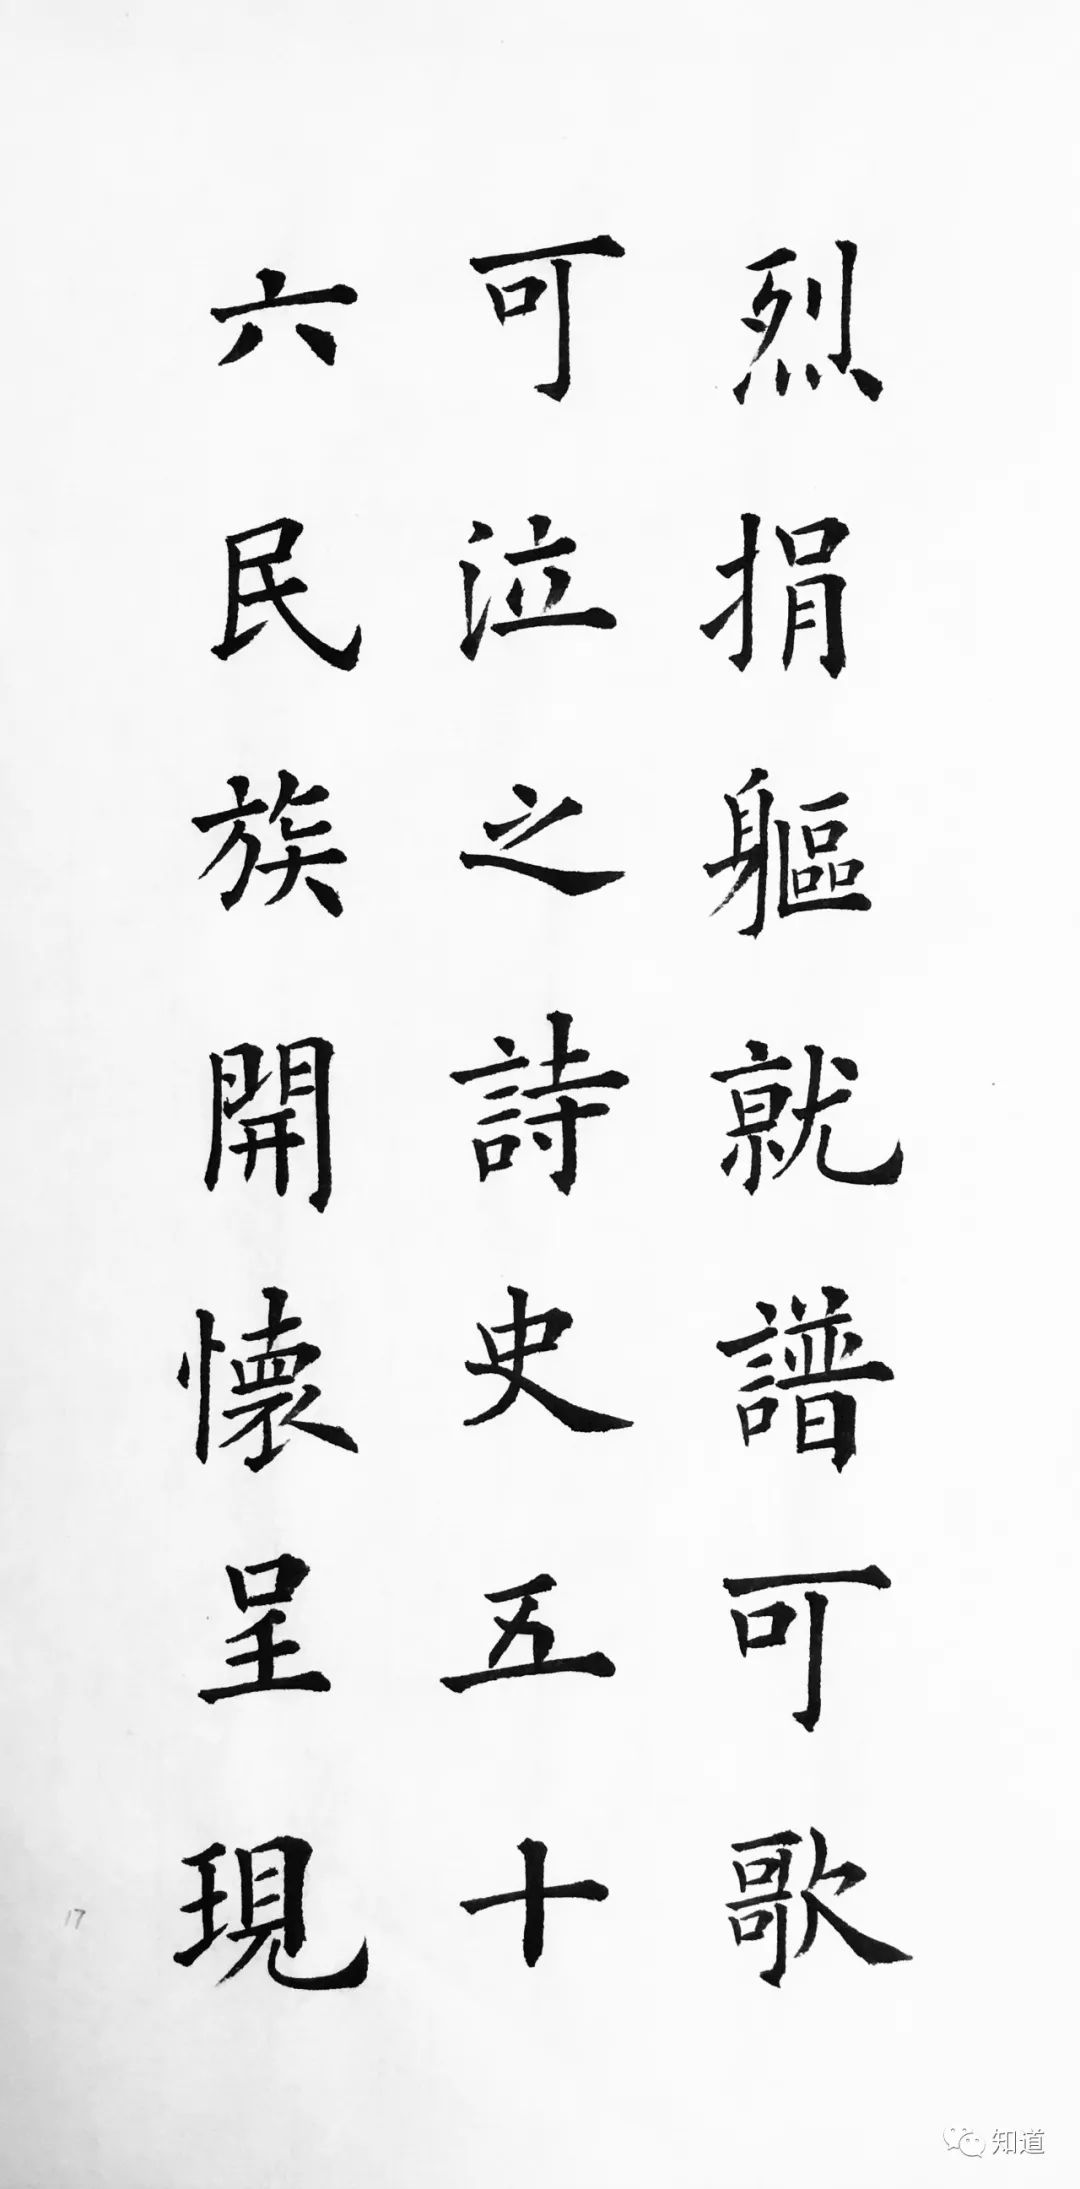 烈捐軀就譜可歌
可泣之詩史五十
六民族開懷呈現
17
知道